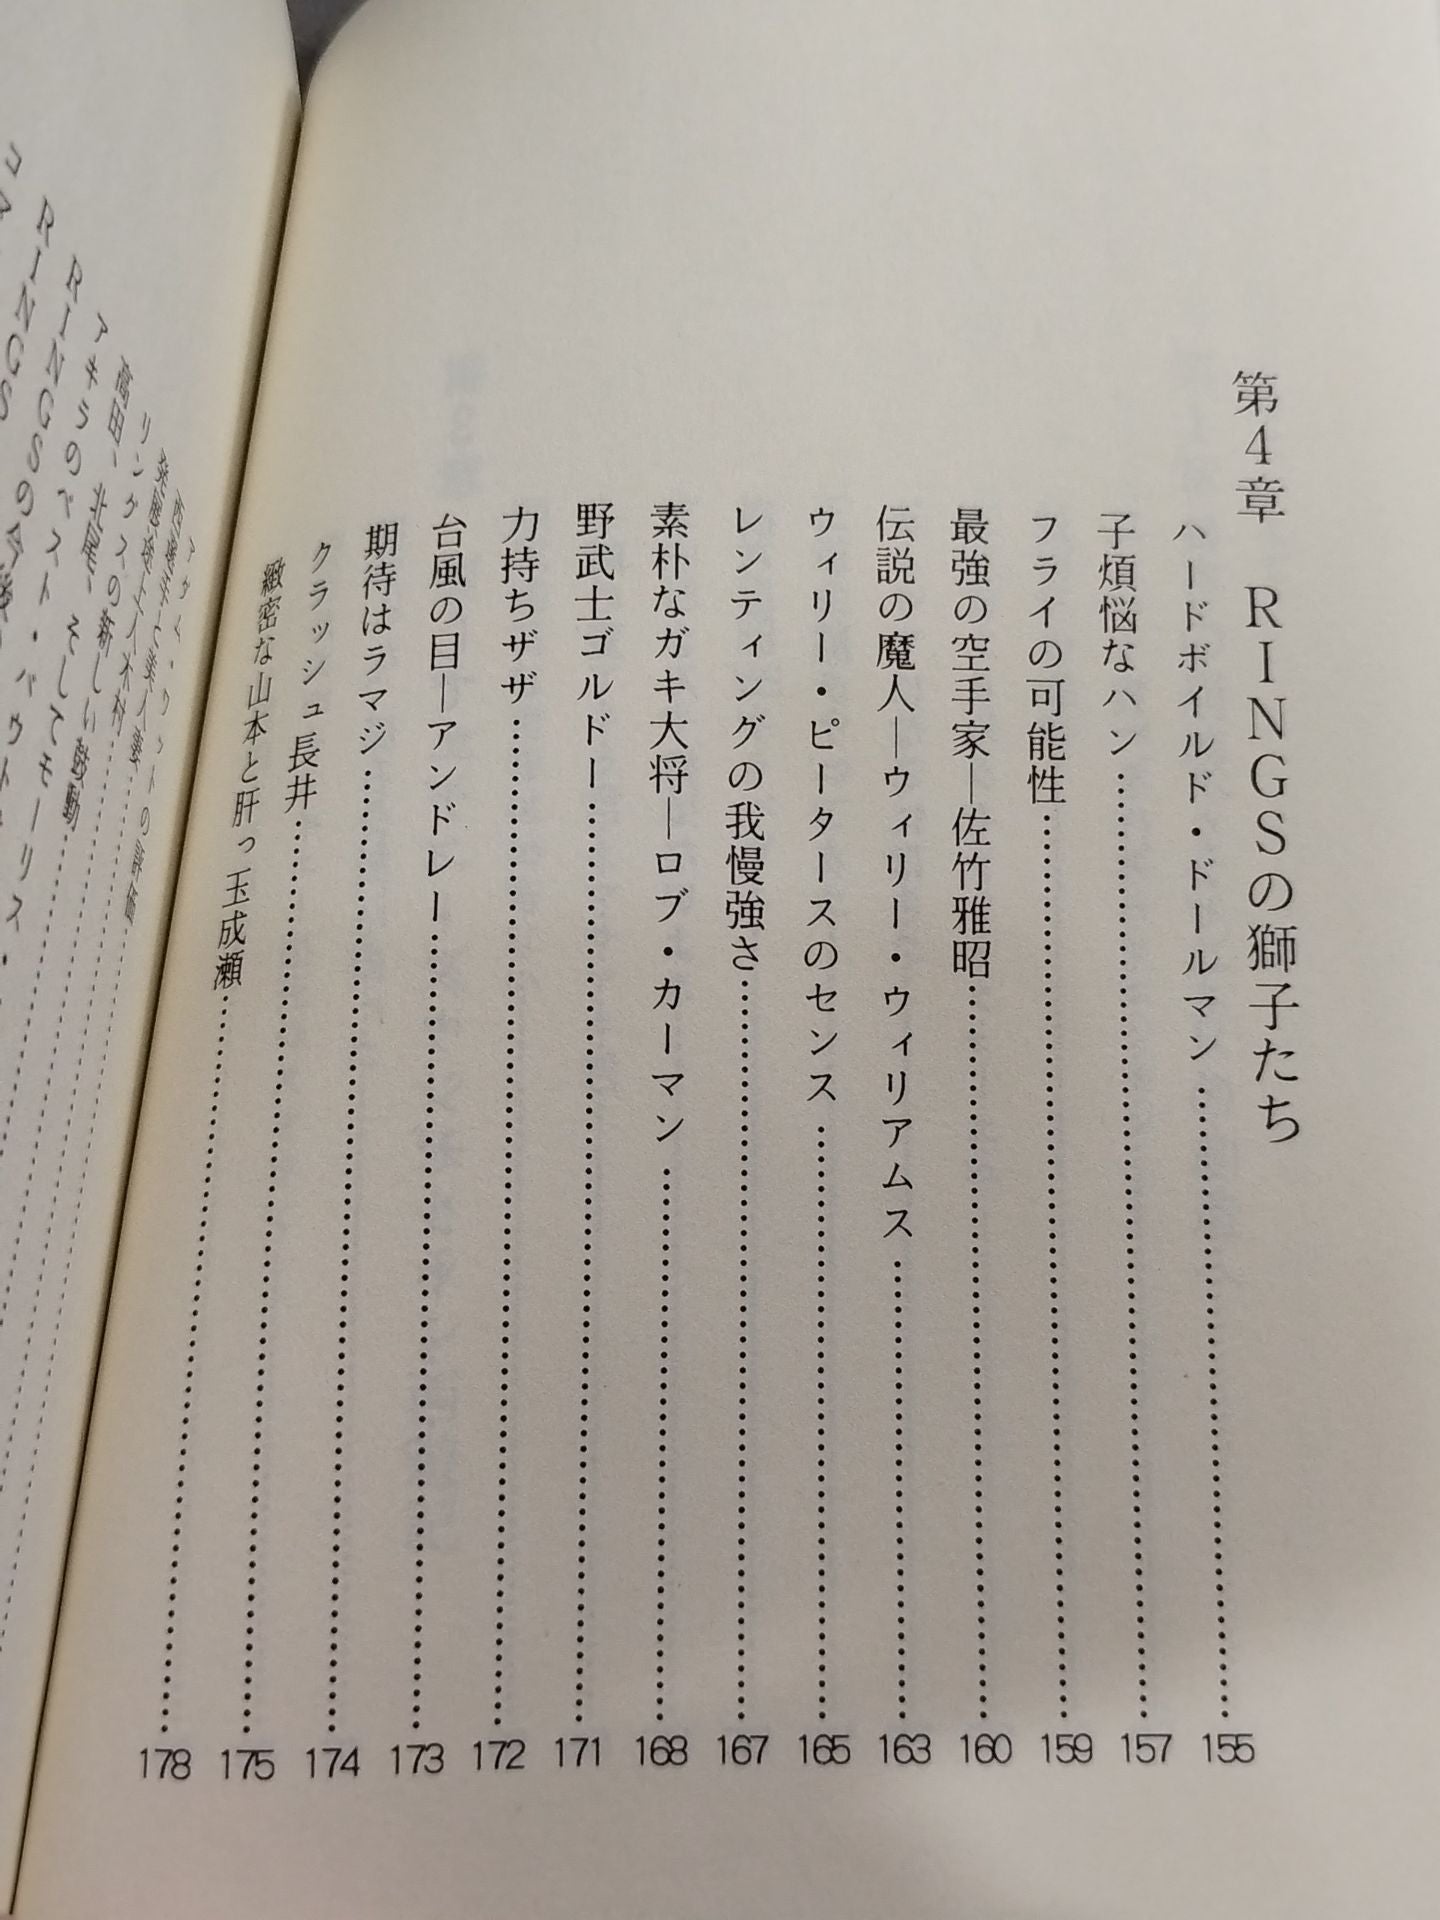 第4章　RINGSの獅子たち
ハードボイルド・ドールマン……155
子煩悩なハン……157
フライの可能性……159
最強の空手家―佐竹雅昭……160
伝説の魔人―ウィリー・ウィリアムス……163
ウィリー・ピータースのセンス……165
レンティングの我慢強さ……167
素朴なガキ大将―ロブ・カーマン……168
野武士ゴルドー……171
力持ちザザ……172
台風の目―アンドレー……173
期待はラマジ……174
クラッシュ長井……175
緻密な山本と肝っ玉成瀬……178
リングスの新しい鼓動
高田、北尾、そしてモーリス・
アキラのベスト・バウト
RINGSの今後
RINGS